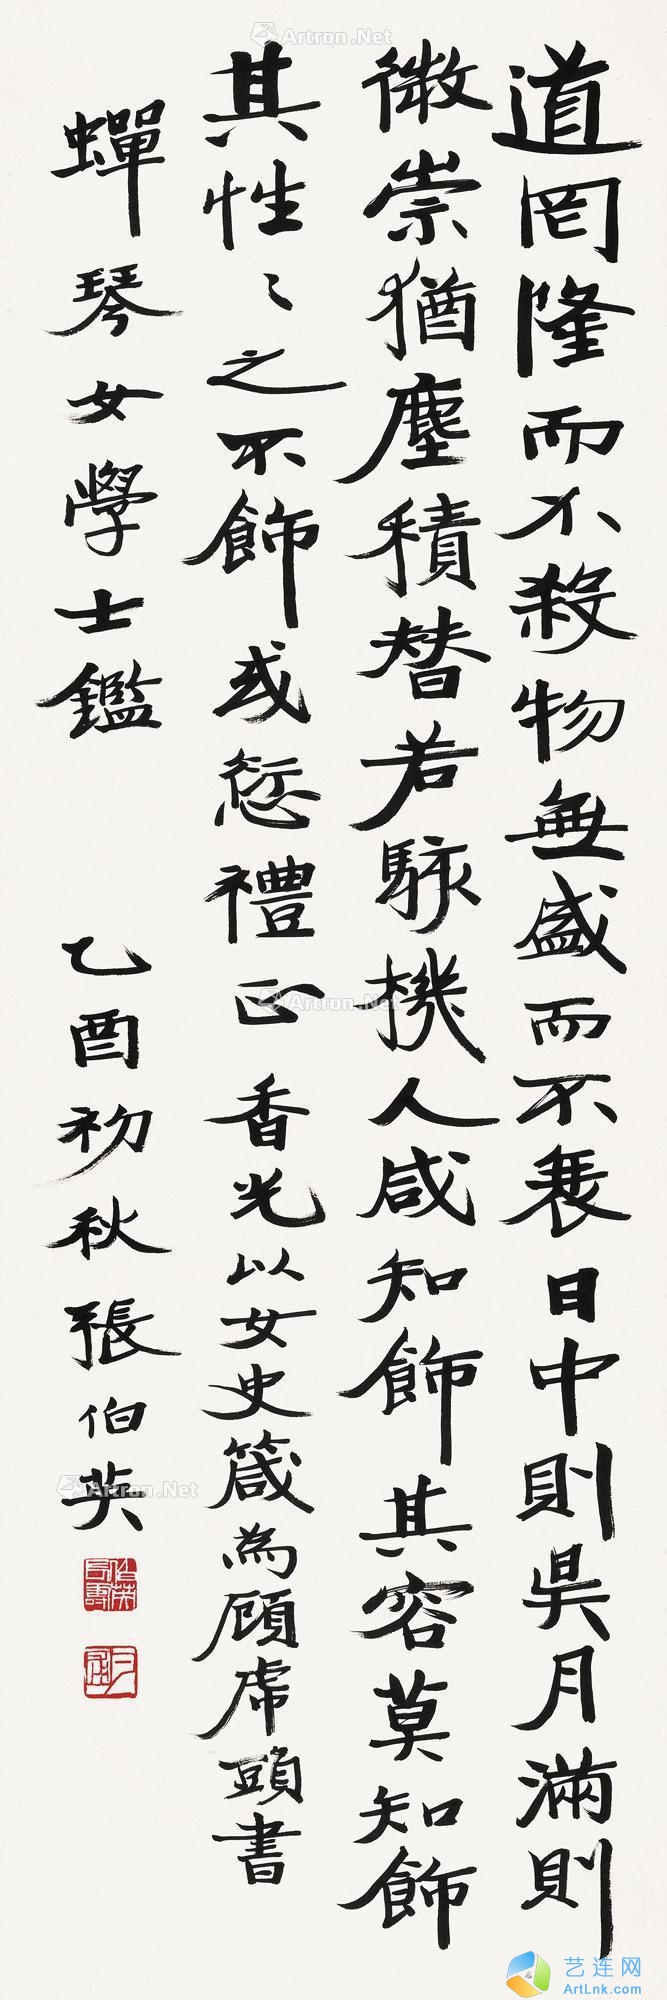 道罔隆而不殺物無盛而不衰日中則昃月滿則
微崇猶塵積替若駭機人咸知飾其容莫知飾
其性〻之不飾或愆禮正 香光以女史箴為顧虎頭書
蟬琴女學士鑑 乙酉初秋張伯英
Artron.Net
Artron.Net
Artron.Net
艺连网
ArtLnk.com